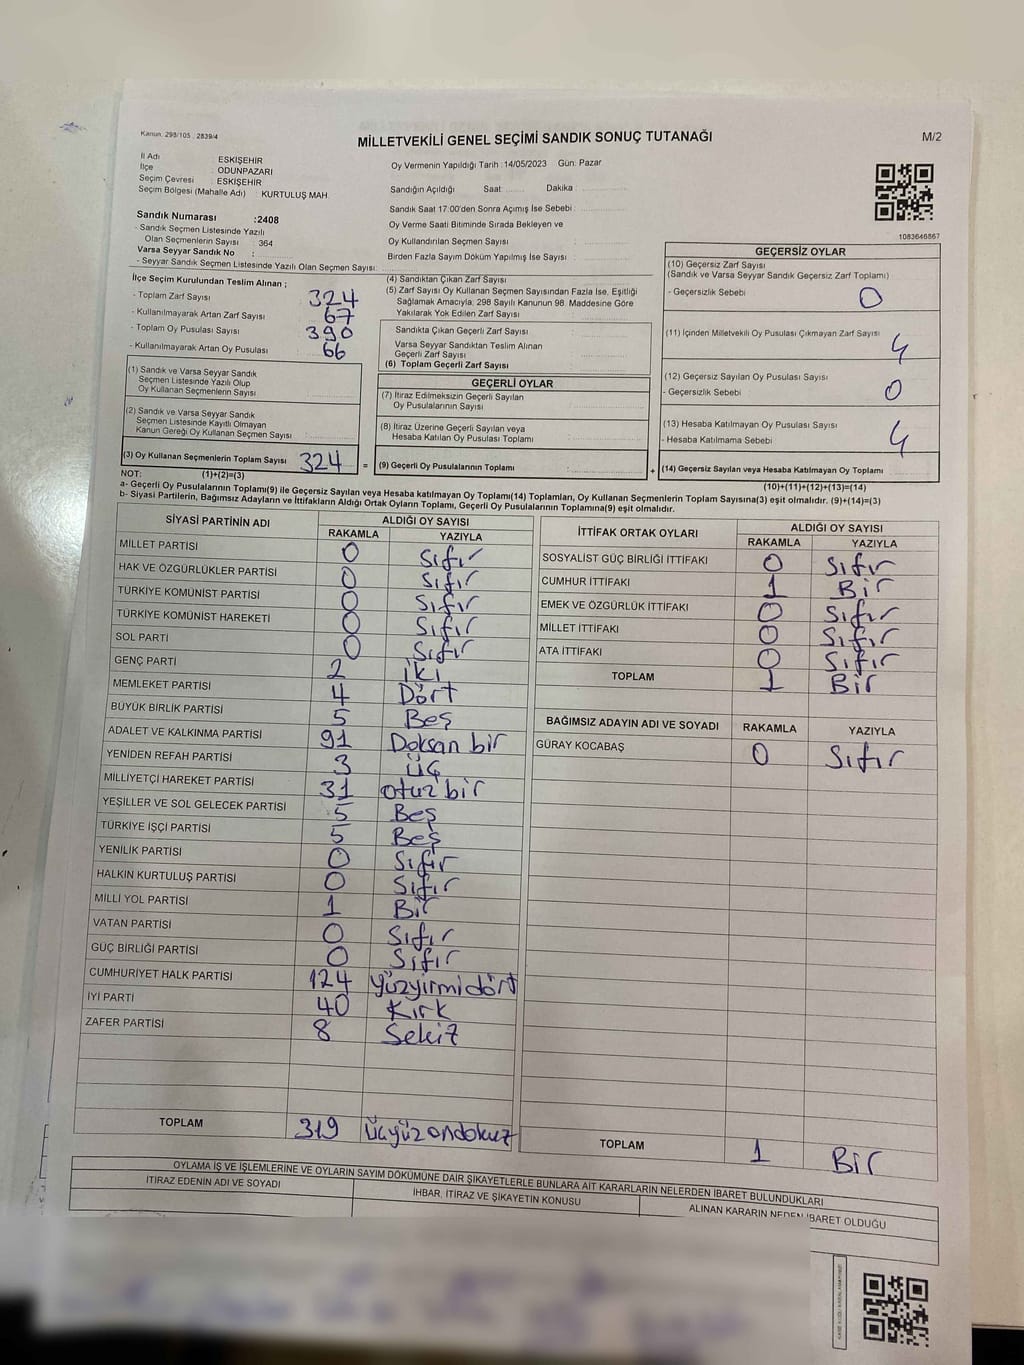 Kanun: 298/105 , 2839/4
MİLLETVEKİLİ GENEL SEÇİMİ SANDIK SONUÇ TUTANAĞI
M/2
İl Adı : ESKİŞEHİR
İlçe : ODUNPAZARI
Seçim Çevresi : ESKİŞEHİR
Seçim Bölgesi (Mahalle Adı) : KURTULUŞ MAH.
Oy Vermenin Yapıldığı Tarih : 14/05/2023 Gün: Pazar
Sandığın Açıldığı Saat: ....... Dakika : ...............
Sandık Saat 17:00'den Sonra Açımış İse Sebebi : ...............
Oy Verme Saati Bitiminde Sırada Bekleyen ve
Oy Kullandırılan Seçmen Sayısı : ...............
Birden Fazla Sayım Döküm Yapılmış İse Sayısı : ...............
1083646867
Sandık Numarası :2408
- Sandık Seçmen Listesinde Yazılı
Olan Seçmenlerin Sayısı : 364
Varsa Seyyar Sandık No :
- Seyyar Sandık Seçmen Listesinde Yazılı Olan Seçmen Sayısı:
İlçe Seçim Kurulundan Teslim Alınan ;
- Toplam Zarf Sayısı : 324
- Kullanılmayarak Artan Zarf Sayısı : 67
- Toplam Oy Pusulası Sayısı : 390
- Kullanılmayarak Artan Oy Pusulası : 66
(1) Sandık ve Varsa Seyyar Sandık
Seçmen Listesinde Yazılı Olup
Oy Kullanan Seçmenlerin Sayısı :
(2) Sandık ve Varsa Seyyar Sandık
Seçmen Listesinde Kayıtlı Olmayan
Kanun Gereği Oy Kullanan Seçmen Sayısı :
(3) Oy Kullanan Seçmenlerin Toplam Sayısı : 324 =
(1)+(2)=(3)
(4) Sandıktan Çıkan Zarf Sayısı :
(5) Zarf Sayısı Oy Kullanan Seçmen Sayısından Fazla İse, Eşitliği
Sağlamak Amacıyla; 298 Sayılı Kanunun 98. Maddesine Göre
Yakılarak Yok Edilen Zarf Sayısı :
Sandıkta Çıkan Geçerli Zarf Sayısı :
Varsa Seyyar Sandıktan Teslim Alınan
Geçerli Zarf Sayısı :
(6) Toplam Geçerli Zarf Sayısı :
GEÇERLİ OYLAR
(7) İtiraz Edilmeksizin Geçerli Sayılan
Oy Pusulalarının Sayısı :
(8) İtiraz Üzerine Geçerli Sayılan veya
Hesaba Katılan Oy Pusulası Toplamı :
(9) Geçerli Oy Pusulalarının Toplamı : +
GEÇERSİZ OYLAR
(10) Geçersiz Zarf Sayısı
(Sandık ve Varsa Seyyar Sandık Geçersiz Zarf Toplamı)
- Geçersizlik Sebebi : 0
(11) İçinden Milletvekili Oy Pusulası Çıkmayan Zarf Sayısı : 4
(12) Geçersiz Sayılan Oy Pusulası Sayısı :
- Geçersizlik Sebebi : 0
(13) Hesaba Katılmayan Oy Pusulası Sayısı :
- Hesaba Katılmama Sebebi : 4
(14) Geçersiz Sayılan veya Hesaba Katılmayan Oy Toplamı
(10)+(11)+(12)+(13)=(14)
NOT:
a- Geçerli Oy Pusulalarının Toplamı(9) ile Geçersiz Sayılan veya Hesaba katılmayan Oy Toplamı(14) Toplamları, Oy Kullanan Seçmenlerin Toplam Sayısına(3) eşit olmalıdır. (9)+(14)=(3)
b- Siyasi Partilerin, Bağımsız Adayların ve İttifakların Aldığı Ortak Oyların Toplamı, Geçerli Oy Pusulalarının Toplamına(9) eşit olmalıdır.
SİYASİ PARTİNİN ADI ALDIĞI OY SAYISI
RAKAMLA YAZIYLA
MİLLET PARTİSİ 0 Sıfır
HAK VE ÖZGÜRLÜKLER PARTİSİ 0 Sıfır
TÜRKİYE KOMÜNİST PARTİSİ 0 Sıfır
TÜRKİYE KOMÜNİST HAREKETİ 0 Sıfır
SOL PARTİ 0 Sıfır
GENÇ PARTİ 2 iki
MEMLEKET PARTİSİ 4 Dört
BÜYÜK BİRLİK PARTİSİ 5 Beş
ADALET VE KALKINMA PARTİSİ 91 Doksan bir
YENİDEN REFAH PARTİSİ 3 üç
MİLLİYETÇİ HAREKET PARTİSİ 31 otuz bir
YEŞİLLER VE SOL GELECEK PARTİSİ 5 Beş
TÜRKİYE İŞÇİ PARTİSİ 5 Beş
YENİLİK PARTİSİ 0 Sıfır
HALKIN KURTULUŞ PARTİSİ 0 Sıfır
MİLLİ YOL PARTİSİ 1 Bir
VATAN PARTİSİ 0 Sıfır
GÜÇ BİRLİĞİ PARTİSİ 0 Sıfır
CUMHURİYET HALK PARTİSİ 124 Yüzyirmidört
İYİ PARTİ 40 Kırk
ZAFER PARTİSİ 8 Sekiz
TOPLAM 319 üçyüzondokuz
İTTİFAK ORTAK OYLARI ALDIĞI OY SAYISI
RAKAMLA YAZIYLA
SOSYALİST GÜÇ BİRLİĞİ İTTİFAKI 0 Sıfır
CUMHUR İTTİFAKI 1 Bir
EMEK VE ÖZGÜRLÜK İTTİFAKI 0 Sıfır
MİLLET İTTİFAKI 0 Sıfır
ATA İTTİFAKI 0 Sıfır
TOPLAM 1 Bir
BAĞIMSIZ ADAYIN ADI VE SOYADI RAKAMLA YAZIYLA
GÜRAY KOCABAŞ 0 Sıfır
TOPLAM 1 Bir
OYLAMA İŞ VE İŞLEMLERİNE VE OYLARIN SAYIM DÖKÜMÜNE DAİR ŞİKAYETLERLE BUNLARA AİT KARARLARIN NELERDEN İBARET BULUNDUKLARI
İTİRAZ EDENİN ADI VE SOYADI İHBAR, İTİRAZ VE ŞİKAYETİN KONUSU ALINAN KARARIN NEDEN İBARET OLDUĞU